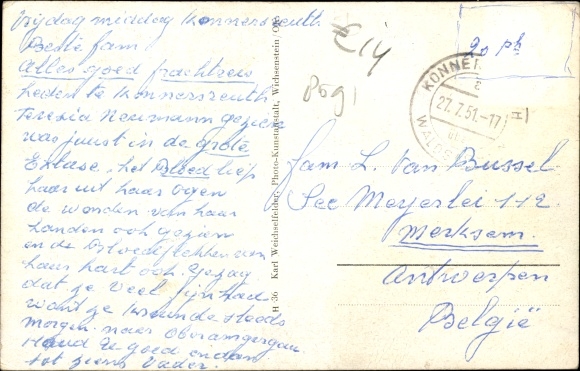 Vrijdag middag Konnersreuth.
Beste fam
Alles goed prachtreis
heden te Konnersreuth
Teresia Neumann gezien
was juist in de grote
Extase, het Bloed liep
haar uit haar ogen
de wonden van haar
handen ook gezien
en de Bloedvlekken van
haar hart ook. Ge zag
dat ze veel pijn had
want ze kreunde steeds
Morgen naar Oberamergau.
Houd U goed en dan
tot ziens Vader.
H 36 Karl Weichselfelder, Photo-Kunstanstalt, Wachsenstein
€ 14
20 Pf
KONNER
27.7.51.-17
WALDS
fam. L. Van Bussel
See Meyerlei 112.
Merksem.
Antwerpen
België